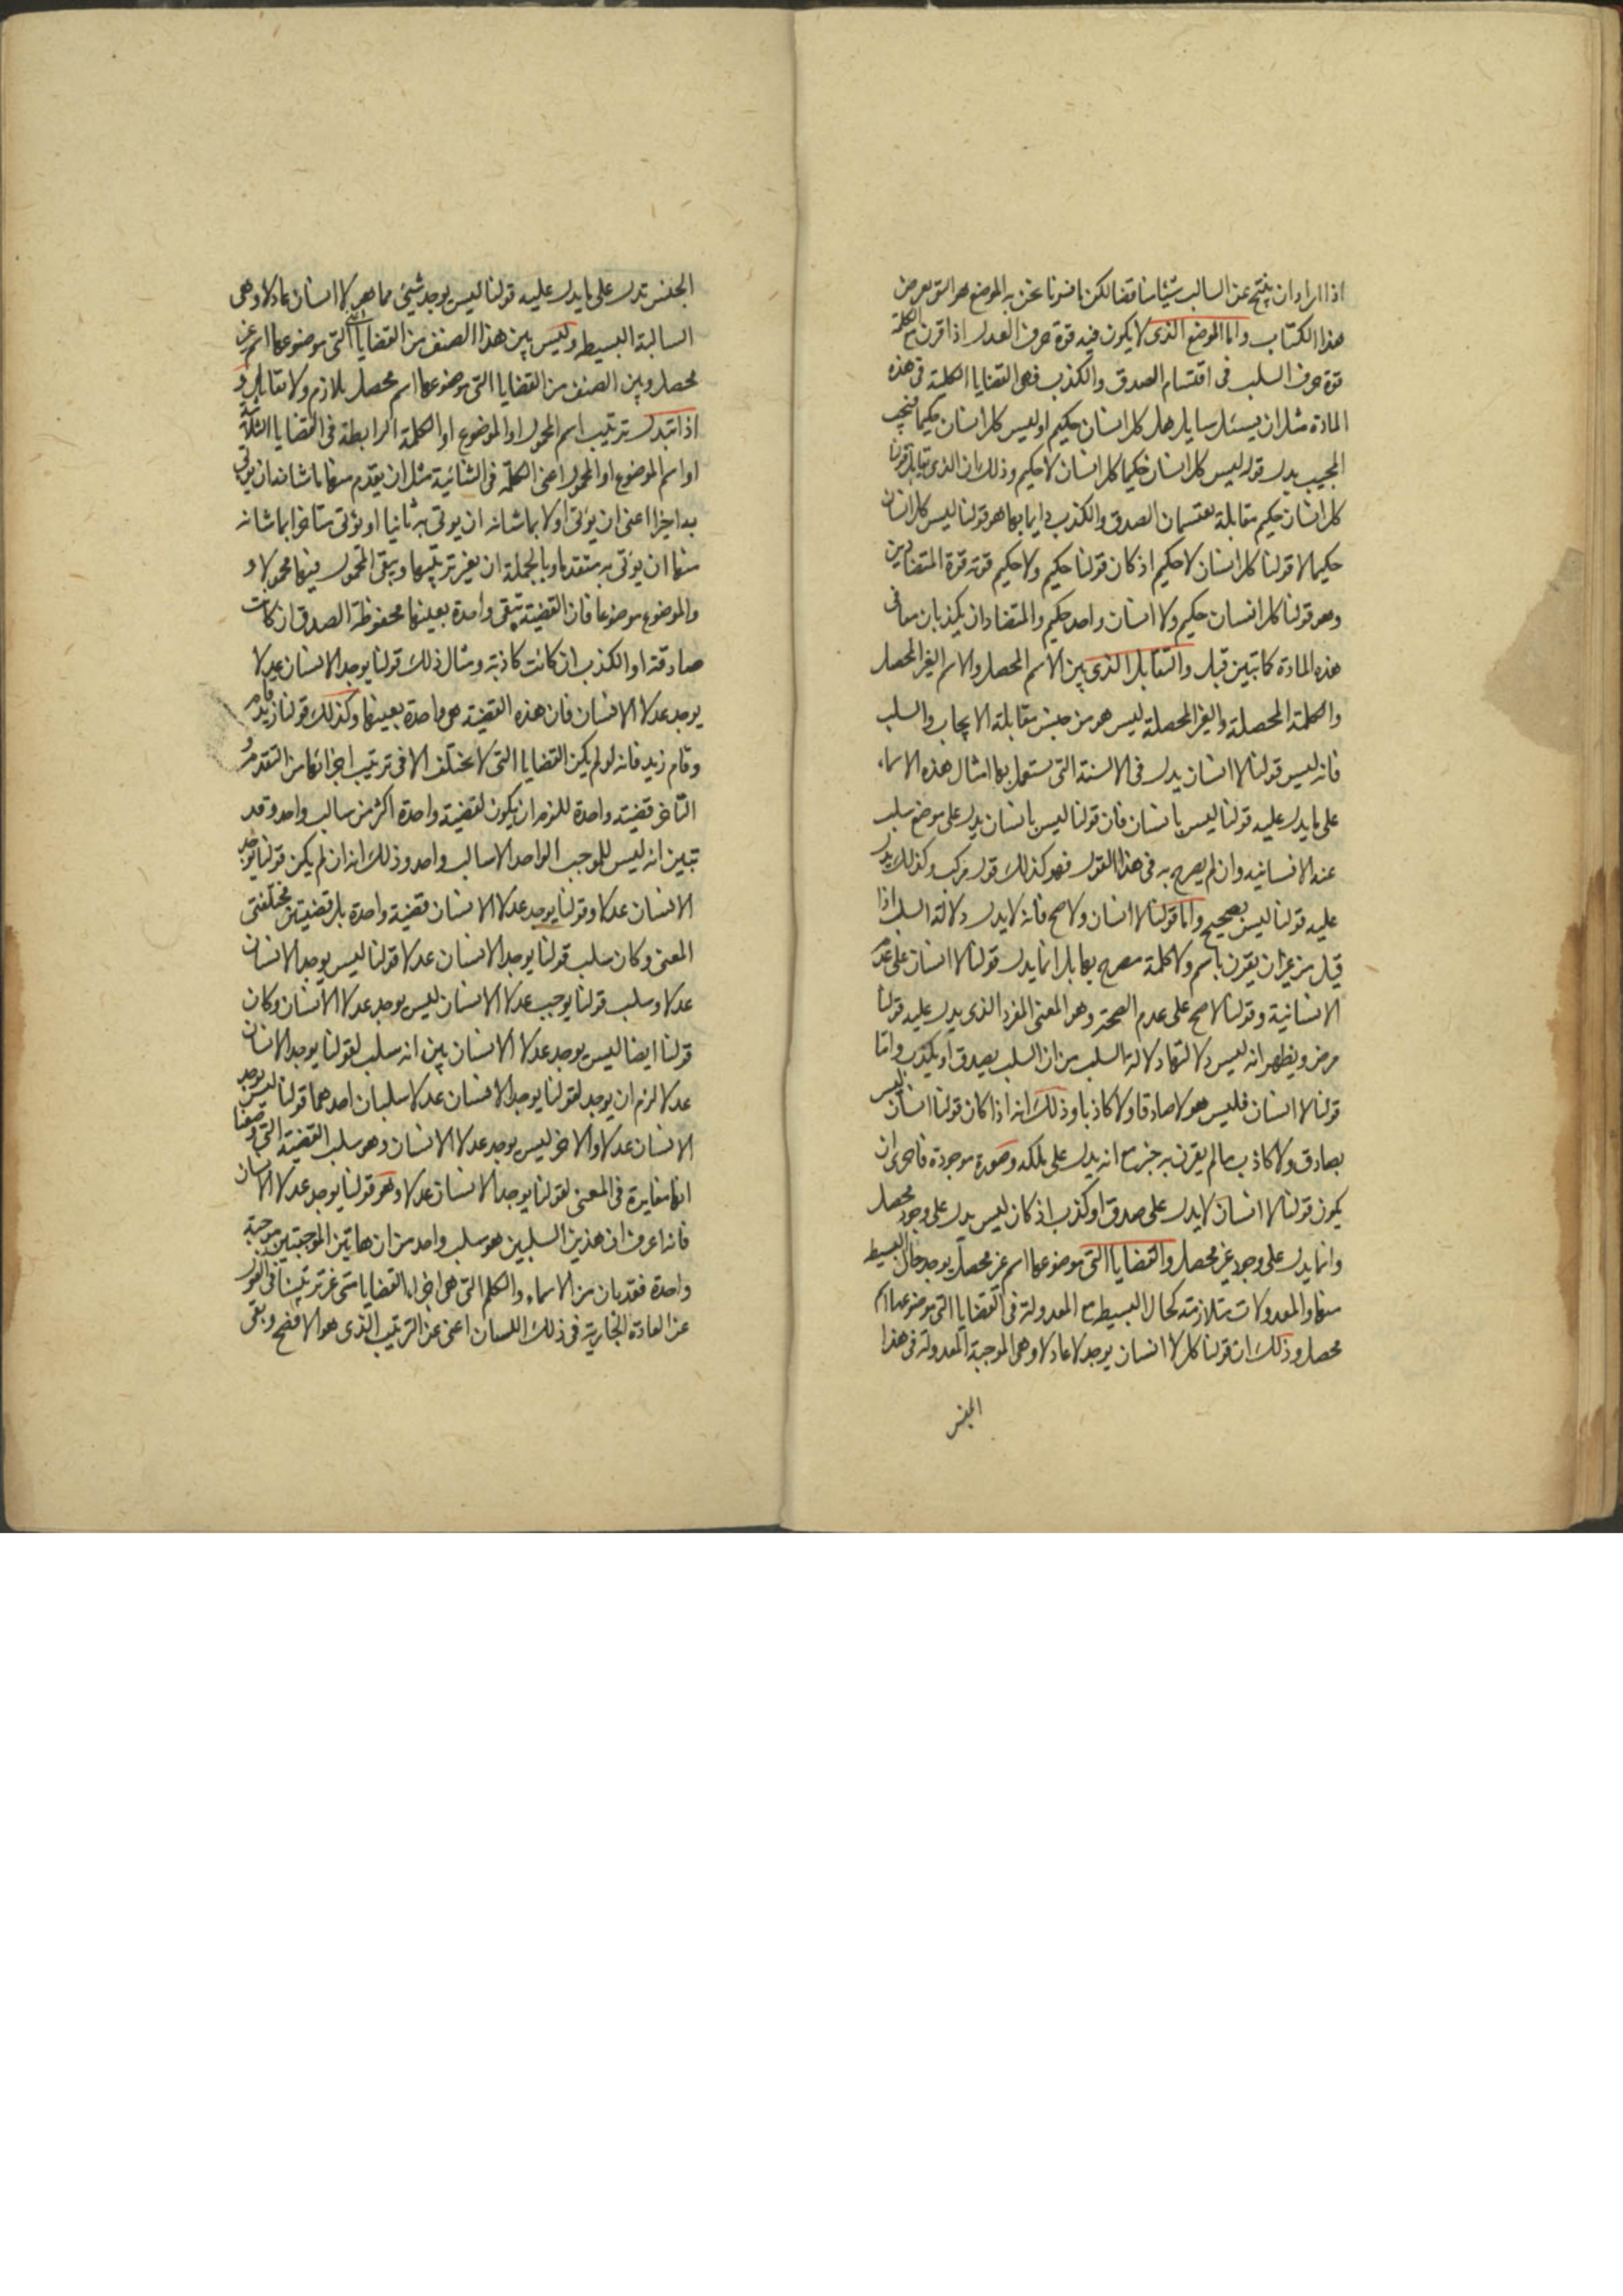 اذا اراد ان ينتج عن السالب شيئا مناقضا لكن ما فسرنا نحن به الموضع هو التي بعرض
هذا الكتاب واما الموضع الذى لا يكون فيه قوة حرف العدل اذا قرن مع الكلمة
قوة حرف السلب فى اقتسام الصدق والكذب فهى القضايا الكلية فى هذه
المادة مثل ان يسئل سايل هل كل انسان حكيم او ليس كل انسان حكيما فيجيب
المجيب بدل قوله ليس كل انسان حكيما كل انسان لا حكيم وذلك ان الذى يقابل قولنا
كل انسان حكيم مقابلة يقتسمان الصدق والكذب دايما بهما هو قولنا ليس كل انسان
حكيما لا قولنا كل انسان لا حكيم اذ كان قولنا حكيم ولا حكيم قوته قوة المتضادين
وهو قولنا كل انسان حكيم ولا انسان واحد حكيم والمتضادان يكذبان معا فى
هذه المادة كما تبين قبل والتقابل الذى بين الاسم المحصل والاسم الغير المحصل
والكلمة المحصلة والغير المحصلة ليس هو من جنس مقابلة الايجاب والسلب
فانه ليس قولنا لا انسان يدل فى الالسنة التى يستعمل بها امثال هذه الاسماء
على ما يدل عليه قولنا ليس بانسان فان قولنا ليس بانسان يدل على موضع سلب
عنه الانسانيه وان لم يصرح به فى هذا القول فهو كذلك قول مركب وكذلك يدل
عليه قولنا ليس بصحيح واما قولنا لا انسان ولا صح فانه لا يدل دلالة السلب اذا
قيل من غير ان يقرن باسم ولا كلمة مصرح بها بل انما يدل قولنا لا انسان على عدم
الانسانية وقولنا لا صح على عدم الصحة وهو المعنى المفرد الذى يدل عليه قولنا
مرض ويظهر انه ليس دلالتها دلالة السلب من ان السلب يصدق او يكذب واما
قولنا لا انسان فليس هو لا صادقا ولا كاذبا وذلك انه اذا كان قولنا انسان ليس
بصادق ولا كاذب ما لم يقرن به خبر مع انه يدل على ملكه وصورة موجودة فاحرى ان
يكون قولنا لا انسان لا يدل على صدق او كذب اذ كان ليس يدل على وجود محصل
وانما يدل على وجود غير محصل والقضايا التى موضوعها اسم غير محصل يوجد حال البسيط
منها والمعدولات متلازمته كحال البسيط مع المعدولة فى القضايا التى موضوعها اسم
محصل وذلك ان قولنا كل لا انسان يوجد لا عادلا وهى الموجبة المعدولة فى هذا
الجنس
الجنس تدل على ما يدل عليه قولنا ليس يوجد شيئ مما هو لا انسان عادلا وهى
السالبة البسيطه وليس بين هذا الصنف من القضايا التى موضوعها اسم غير
محصل وبين الصنف من القضايا التى موضوعها اسم محصل تلازم ولا تقابل و
اذا تبدل ترتيب اسم المحمول او الموضوع او الكلمة الرابطة فى القضايا الثلاثية
او اسم الموضوع او المحمول اعنى الكلمة فى الثنائية مثل ان يقدم منها ما شانه ان يوتى
به اخيرا اعنى ان يؤتى اولا بما شانه ان يوتى به ثانيا او يؤتى متاخرا بما شانه
منها ان يؤتى به متقدما وبالجملة ان يغير ترتيبها ويبقى المحمول فيها محمولا و
والموضوع موضوعا فان القضية تبقى واحدة بعينها محفوظة الصدق ان كانت
صادقة او الكذب ان كانت كاذبة ومثال ذلك قولنا يوجد الانسان عدلا
يوجد عدلا الانسان فان هذه القضية هى واحدة بعينها وكذلك قولنا زيد قام
وقام زيد فانه لو لم يكن القضايا التى لا تختلف الا فى ترتيب اجزائها من التقدم و
التاخر قضية واحدة للزم ان يكون لقضية واحدة اكثر من سالب واحد وقد
تبين انه ليس للموجب الواحد الا سالب واحد وذلك انه ان لم يكن قولنا يوجد
الانسان عدلا وقولنا يوجد عدلا الانسان قضية واحدة بل قضيتين مختلفتى
المعنى وكان سلب قولنا يوجد الانسان عدلا قولنا ليس يوجد الانسان
عدلا وسلب قولنا يوجب عدلا الانسان ليس يوجد عدلا الانسان وكان
قولنا ايضا ليس يوجد عدلا الانسان بين انه سلب لقولنا يوجد الانسان
عدلا لزم ان يوجد لقولنا يوجد الانسان عدلا سلبان احدهما قولنا ليس يوجد
الانسان عدلا والاخر ليس يوجد عدلا الانسان وهو سلب القضية التى وضعنا
انها مغايرة فى المعنى لقولنا يوجد الانسان عدلا وهو قولنا يوجد عدلا الانسان
فانه اعرف ان هذين السلبين هو سلب واحد من ان هاتين الموجبتين موجبة
واحدة فقد بان من الاسماء والكلم التى هى اجزاء القضايا متى غير ترتيبنا فى القول
عن العادة الجارية فى ذلك اللسان اعنى عن الترتيب الذى هو الافصح وبقى